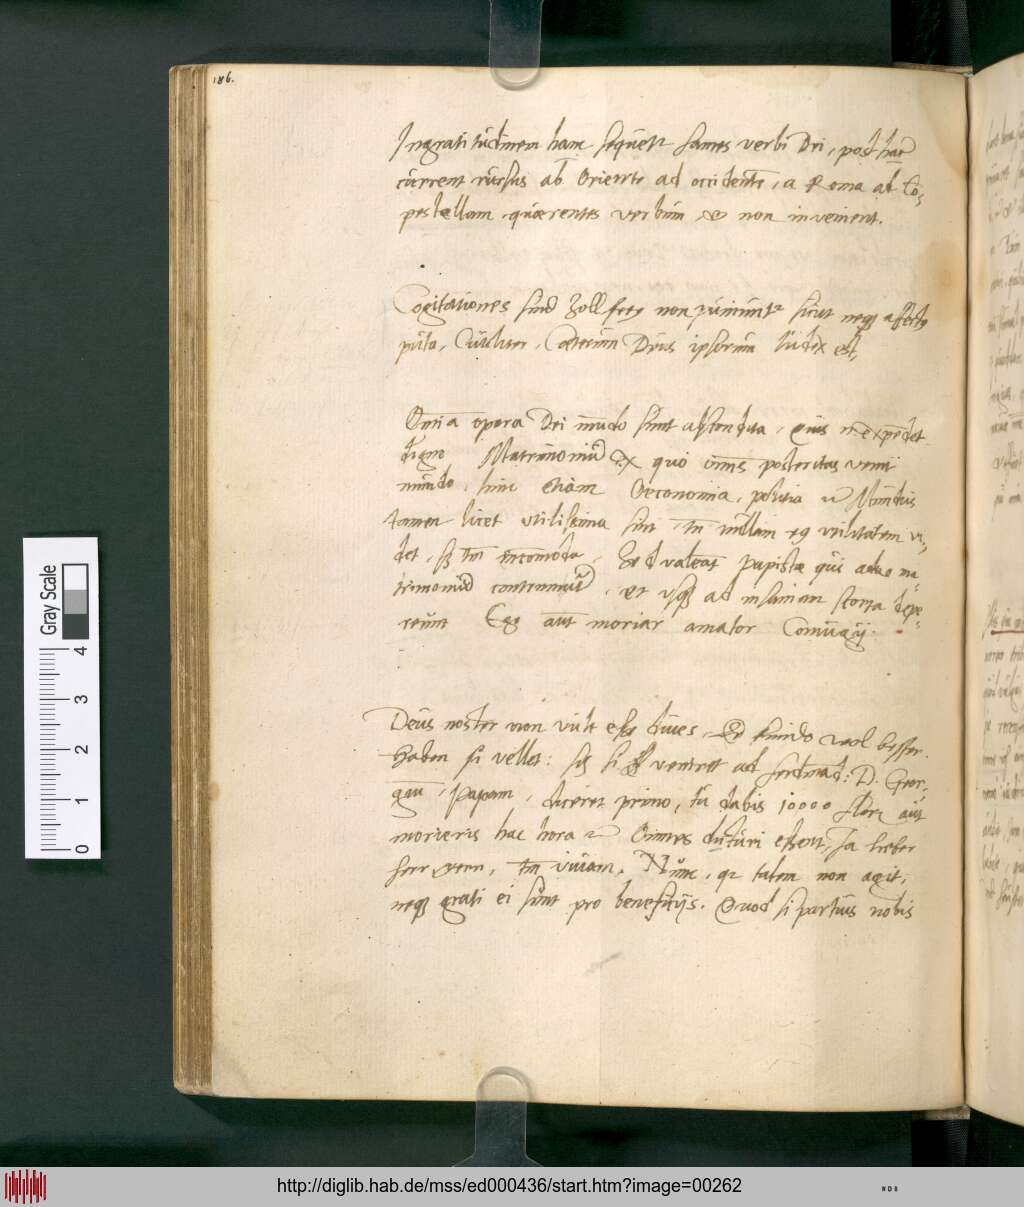 186.
Ingratitudinem hanc sequetr fames verbi Dei, post hac
current rursus ab Oriente ad occidentē, a Roma ad Co,
postellam, quærentes verbum & non invenient.
Cogitationes sind zollfrey non puniunt sicut neqꝫ affectꝰ
puta, Ciuiliter, Cæterum Deus ipsorum iudex est,
Omnia opera Dei mūdo sunt abscondita, eius
digne Matrimoniū ex quo omnis posteritas venit
mundo, hinc etiam Oeconomia, politia Mundus
tamen licet vtilissima sint, tn̄ nullam eꝰ vtilitatem vi,
det, sꝫ tm̄ incommoda, Sed valeāt papistæ qui adeo ma,
trimoniū contemnūt, et vsqꝫ ad insaniam scorta depe,
reunt Ego aut moriar amator Coniugij.
Deus noster non vult esse diues, Er kundo wol besser
haben si vellet: sꝫ si veniret ad ferdinād: D. Geor,
giū, Papam, diceret primo, tu dabis 10000 flor, aut
morieris hac hora Omnes daturi essent, Ja lieber
herr gern, tm̄ viuam. Nunc, qꝛ talem non agit,
neqꝫ grati ei sunt pro beneficijs. Quod si partius nobis
Gray Scale
0 1 2 3 4
http://diglib.hab.de/mss/ed000436/start.htm?image=00262